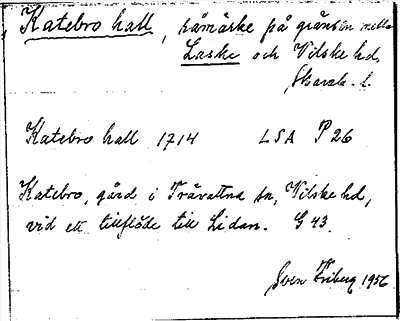 Katebro hall, råmärke på gränsen mella
Laske och Vilske hd,
Skarab. l.
Katebro hall 1714 LSA P 26
Katebro, gård i Trävattna sn, Vilske hd,
vid ett tillflöde till Lidan. G 43.
Sven Friberg 1956